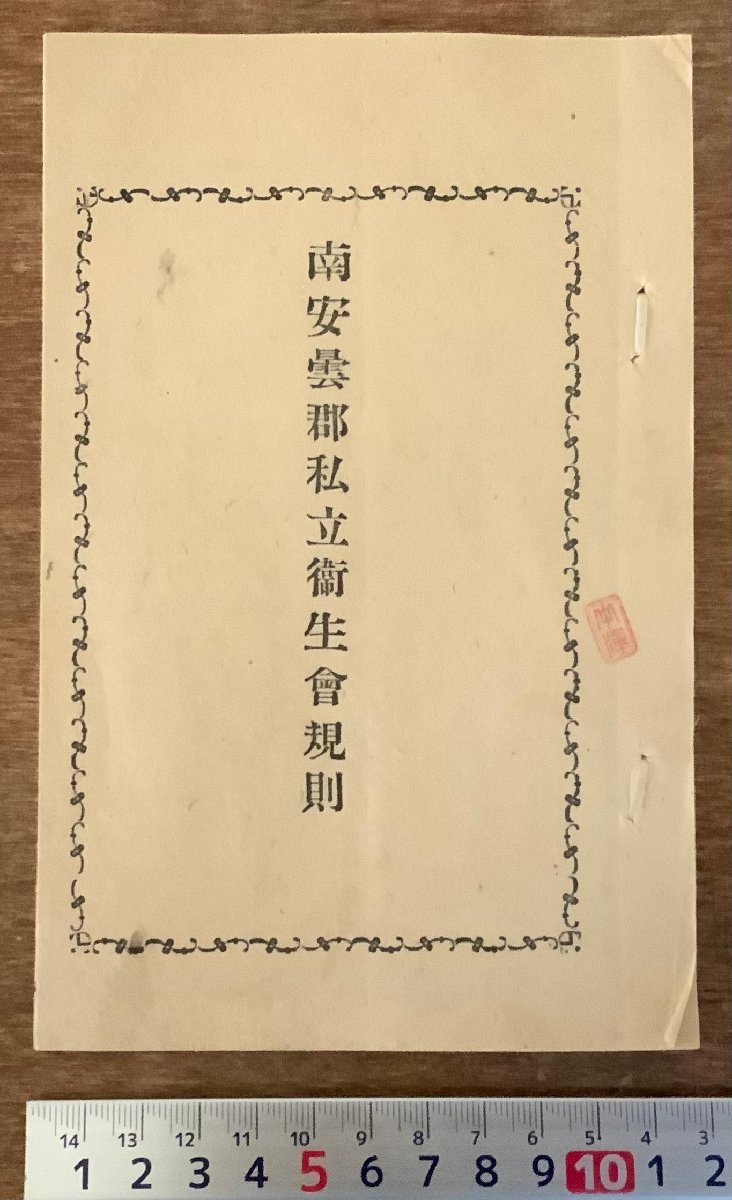 南安曇郡私立衞生會規則
14 13 12 11 10 9 8 7 6 5 4 3
1 2 3 4 5 6 7 8 9 10 1 2